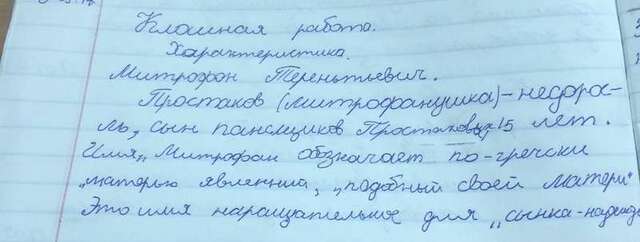 Классная работа.
Характеристика.
Митрофан Терентьевич.
Простаков (Митрофанушка) - недорос-
ль, сын помещиков Простаковых 15 лет.
Имя „Митрофан обозначает по-гречески
„матерью явленный, „подобный своей матери"
Это имя нарицательное для „сынка-